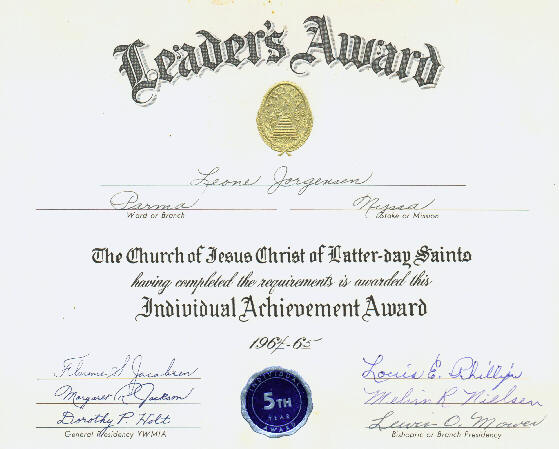 Leader's Award
Leone Jorgensen
Parma Nyssa
Ward or Branch Stake or Mission
The Church of Jesus Christ of Latter-day Saints
having completed the requirements is awarded this
Individual Achievement Award
1964-65
Florence S. Jacobsen
Margaret R. Jackson
Dorothy P. Holt
General Presidency YWMIA
INDIVIDUAL
5TH
YEAR
AWARD
Louis E. Phillips
Melvin R. Nielsen
Lewis O. Mower
Bishopric or Branch Presidency